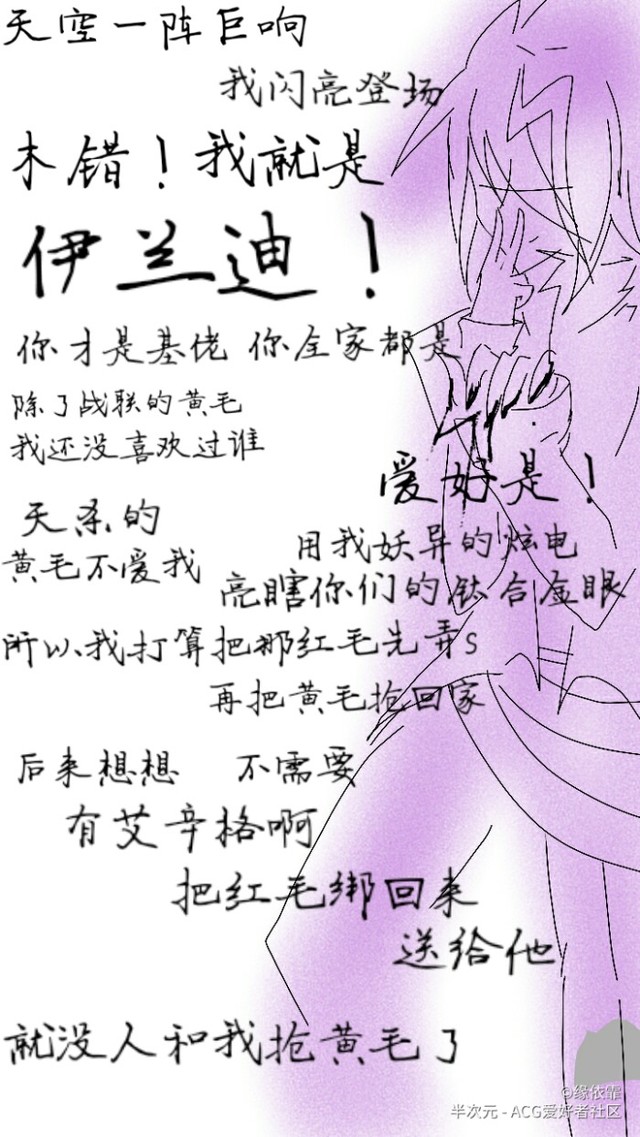 天空一阵巨响
我闪亮登场
木错！我就是
伊兰迪！
你才是基佬 你全家都是
除了战联的黄毛
我还没喜欢过谁
爱好是！
天杀的
黄毛不爱我
用我妖异的炫电
亮瞎你们的钛合金眼
所以我打算把那红毛先弄s
再把黄毛抢回家
后来想想 不需要
有艾辛格啊
把红毛绑回来
送给他
就没人和我抢黄毛了
@缘依霏
半次元 - ACG爱好者社区